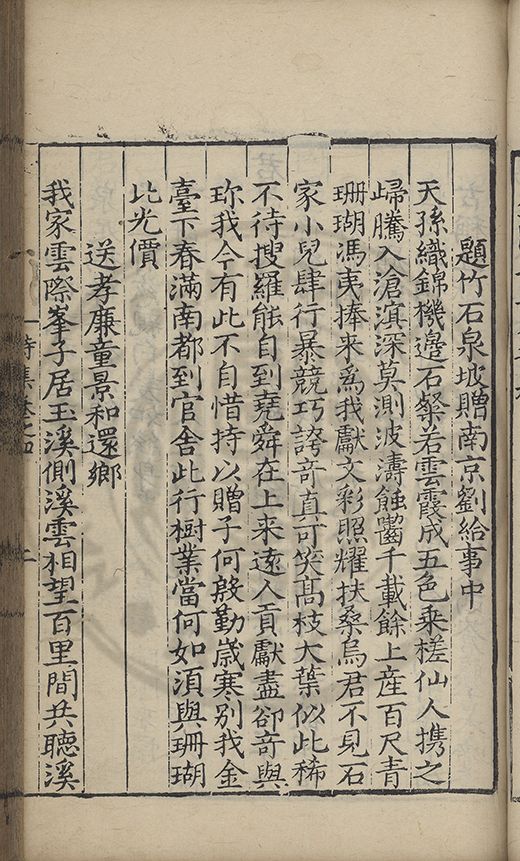 題竹石泉坡贈南京劉給事中
天孫織錦機邊石粲若雲霞成五色乘槎仙人携之
歸騰入滄溟深莫測波濤蝕齧千載餘上産百尺青
珊瑚馮夷捧来爲我獻文彩照耀扶桑烏君不見石
家小兒肆行暴競巧誇竒真可笑髙枝大葉似此稀
不待搜羅能自到堯舜在上来遠人貢獻盡卻竒與
珎我今有此不自惜持以贈子何殷勤歳寒別我金
臺下春滿南都到官舍此行樹業當何如須與珊瑚
比光價
送孝廉童景和還鄉
我家雲際峯子居玉溪側溪雲相望百里間共聽溪
詩集卷之四
二